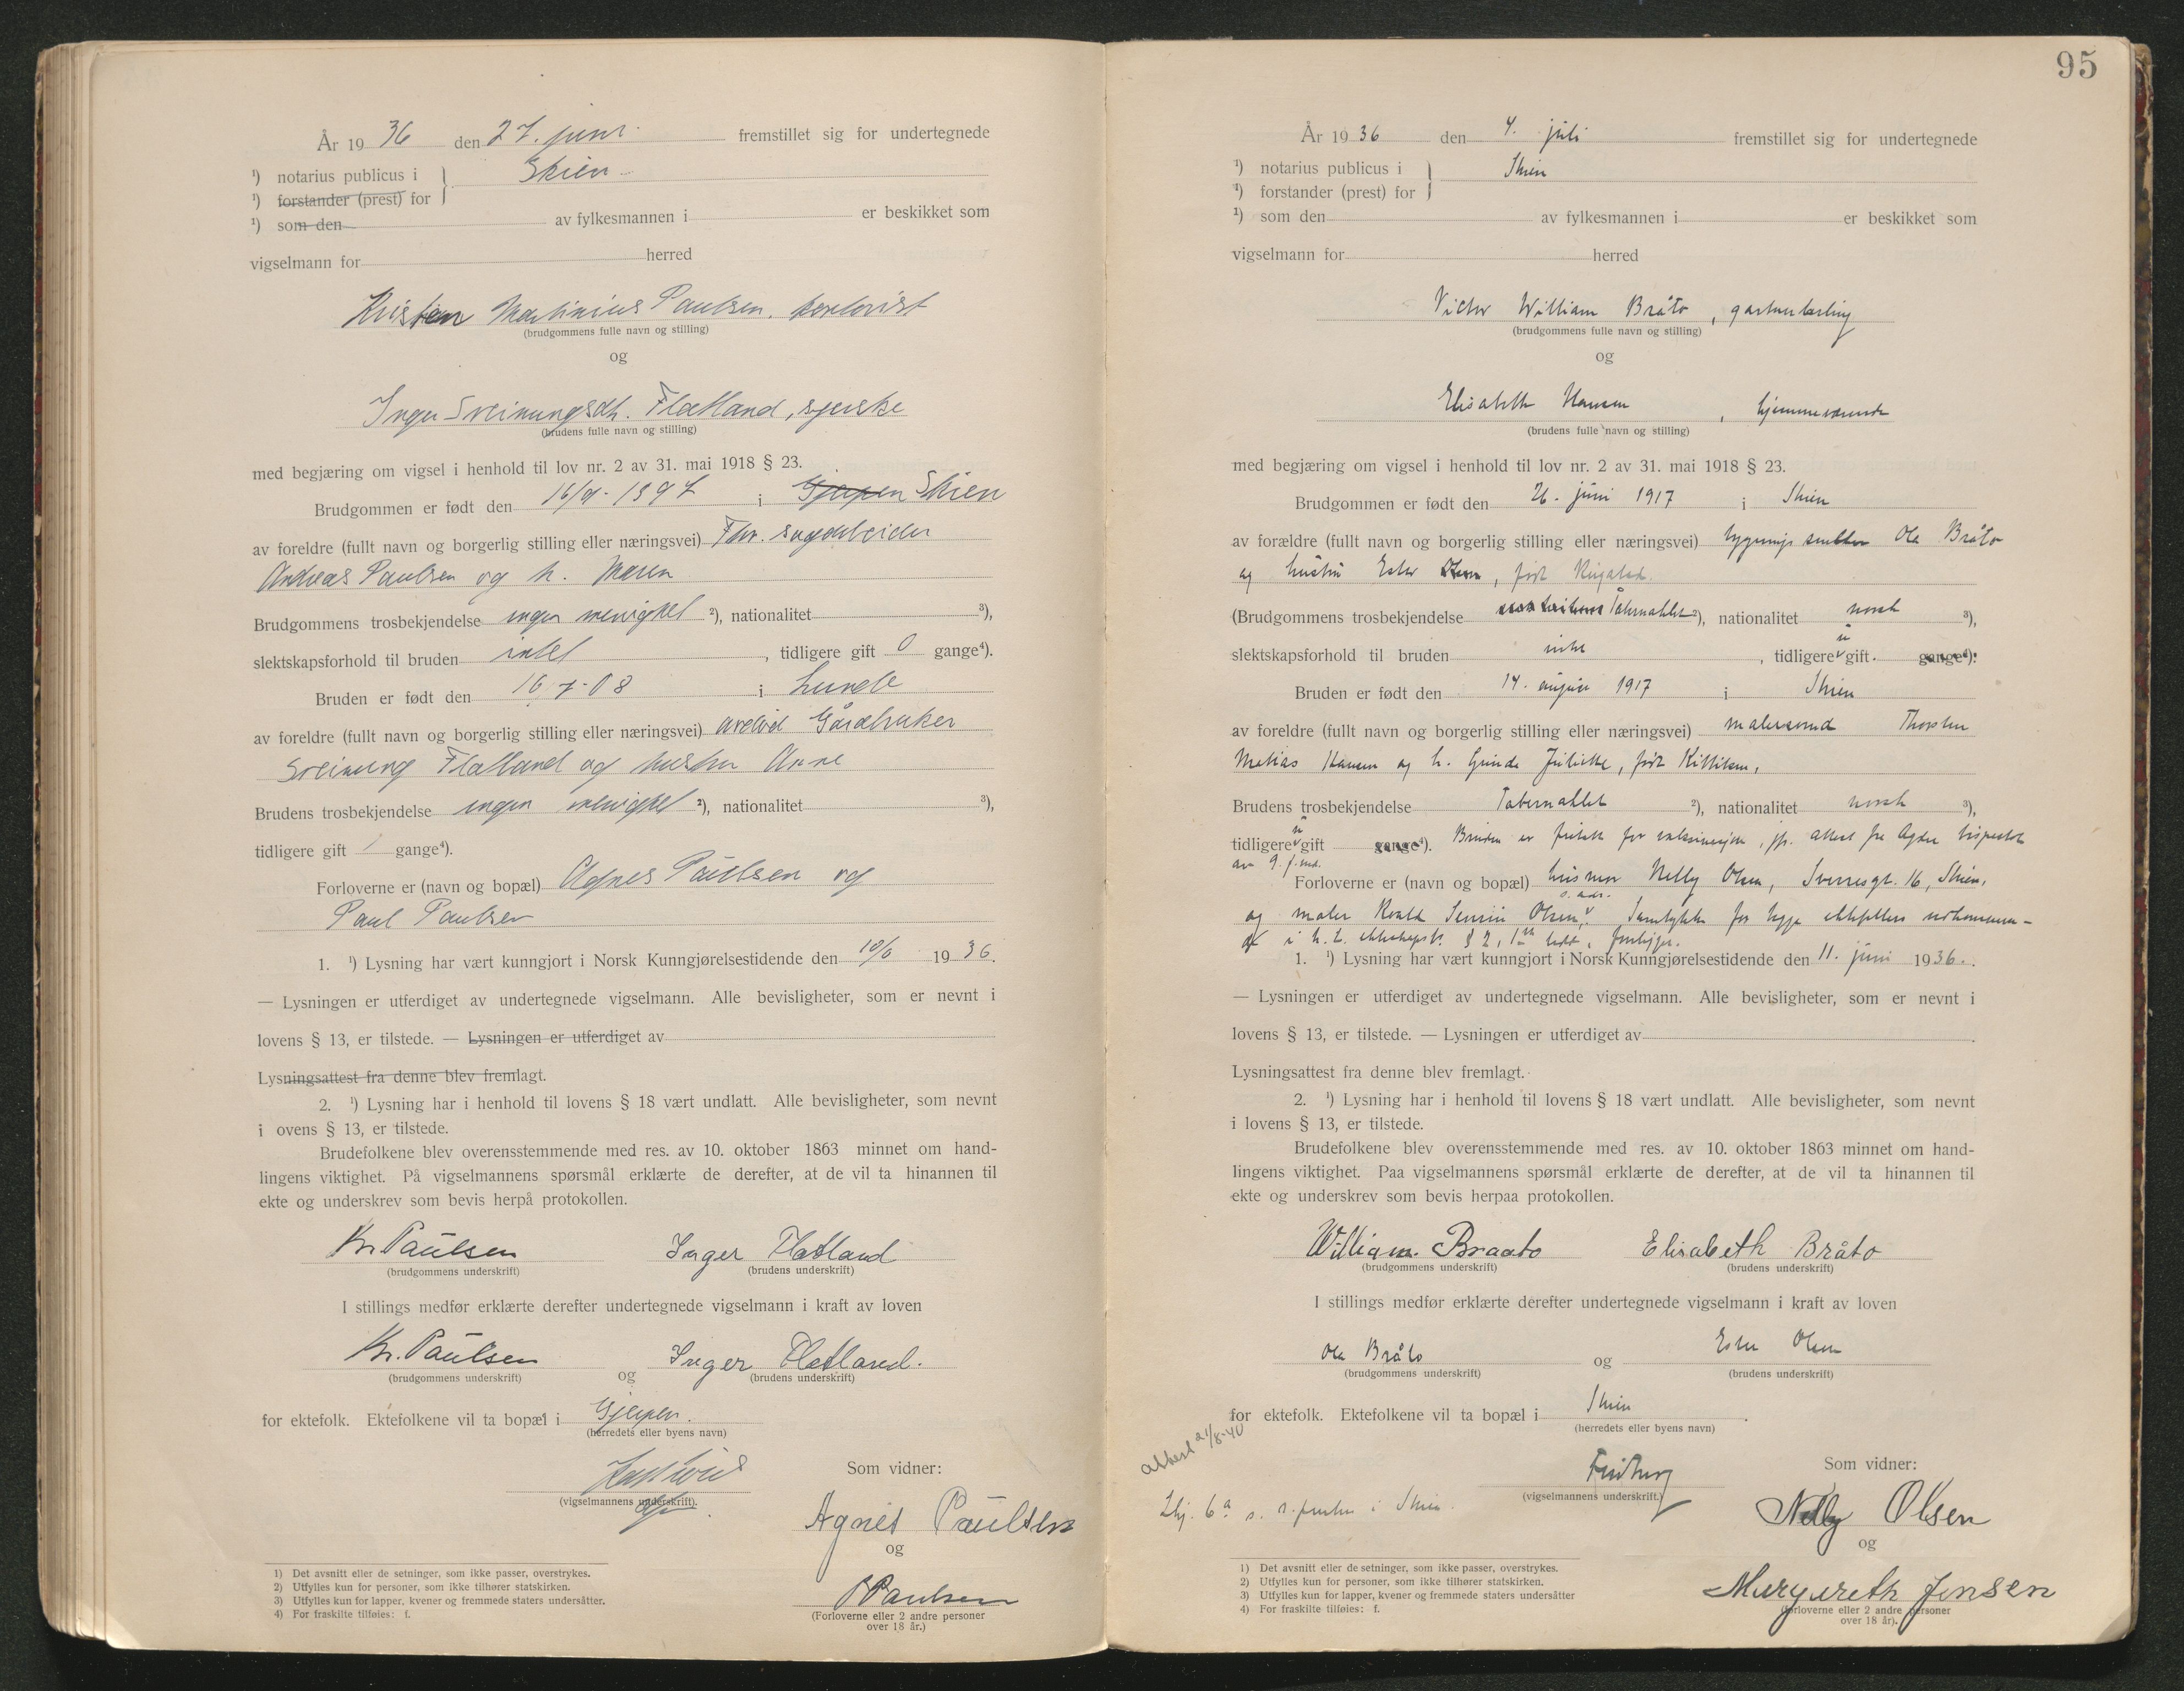 År 1936 den 27. juni fremstillet sig for undertegnede
1) notarius publicus i Skien
1) forstander (prest) for
1) som den av fylkesmannen i er beskikket som
vigselmann for herred
Kristen Martinius Paulsen. kontorist
(brudgommens fulle navn og stilling)
og
Inger Sveinungsdtr. Flatland, syerske
(brudens fulle navn og stilling)
med begjæring om vigsel i henhold til lov nr. 2 av 31. mai 1918 § 23.
Brudgommen er født den 16/9-1897 i Gjerpen Skien
av foreldre (fullt navn og borgerlig stilling eller næringsvei) Fhv. sagarbeider
Andreas Paulsen og h. Maren
Brudgommens trosbekjendelse ingen menighet 2), nationalitet 3),
slektskapsforhold til bruden intet, tidligere gift 0 gange4).
Bruden er født den 16.7-08 i Lunde
av foreldre (fullt navn og borgerlig stilling eller næringsvei) avdød Gårdbruker
Sveinung Flatland og hustru Anne
Brudens trosbekjendelse ingen menighet 2), nationalitet 3),
tidligere gift / gange4).
Forloverne er (navn og bopæl) Agnes Paulsen og
Paul Paulsen
1. 1) Lysning har vært kunngjort i Norsk Kunngjørelsestidende den 10/6 1936.
— Lysningen er utferdiget av undertegnede vigselmann. Alle bevisligheter, som er nevnt i
lovens § 13, er tilstede. — Lysningen er utferdiget av
Lysningsattest fra denne blev fremlagt.
2. 1) Lysning har i henhold til lovens § 18 vært undlatt. Alle bevisligheter, som nevnt
i ovens § 13, er tilstede.
Brudefolkene blev overensstemmende med res. av 10. oktober 1863 minnet om hand-
lingens viktighet. På vigselmannens spørsmål erklærte de derefter, at de vil ta hinannen til
ekte og underskrev som bevis herpå protokollen.
Kr. Paulsen Inger Flatland
(brudgommens underskrift) (brudens underskrift)
I stillings medfør erklærte derefter undertegnede vigselmann i kraft av loven
Kr. Paulsen og Inger Flatland.
(brudgommens underskrift) (brudens underskrift)
for ektefolk. Ektefolkene vil ta bopæl i Gjerpen.
(herredets eller byens navn)
(vigselmannens underskrift).
Som vidner:
Agnes Paulsen
og
P Paulsen
(Forloverne eller 2 andre personer
over 18 år.)
1) Det avsnitt eller de setninger, som ikke passer, overstrykes.
2) Utfylles kun for personer, som ikke tilhører statskirken.
3) Utfylles kun for lapper, kvener og fremmede staters undersåtter.
4) For fraskilte tilføies: f.
95
År 1936 den 4. juli fremstillet sig for undertegnede
1) notarius publicus i Skien
1) forstander (prest) for
1) som den av fylkesmannen i er beskikket som
vigselmann for herred
Victor William Bråto, gartnerlærling
(brudgommens fulle navn og stilling)
og
Elisabeth Hansen, hjemmeværende
(brudens fulle navn og stilling)
med begjæring om vigsel i henhold til lov nr. 2 av 31. mai 1918 § 23.
Brudgommen er født den 26. juni 1917 i Skien
av forældre (fullt navn og borgerlig stilling eller næringsvei) bygningssnekker Ola Bråto
og hustru Ester Olsen, født
(Brudgommens trosbekjendelse Tabernaklet 2), nationalitet norsk 3),
slektskapsforhold til bruden intet, tidligere ei gift gange4).
Bruden er født den 14. august 1917 i Skien
av foreldre (fullt navn og borgerlig stilling eller næringsvei) malersvend Thorsten
Matias Hansen og h. Gunda Juliette, født Kittilsen,
Brudens trosbekjendelse Tabernaklet 2), nationalitet norsk 3),
tidligere ei gift gange4). Bruden er fritatt for, jfr. attest fra Agder bispestol
av 9. f. md.
Forloverne er (navn og bopæl) husmor Nelly Olsen, Sverresgt. 16, Skien,
og maler Olsen, s. adr. Samtykke for begge ektefellers vedkommende
i h. t. ekteskapsl. § 2, 1ste ledd, foreligger.
1. 1) Lysning har vært kunngjort i Norsk Kunngjørelsestidende den 11. juni 1936.
— Lysningen er utferdiget av undertegnede vigselmann. Alle bevisligheter, som er nevnt i
lovens § 13, er tilstede. — Lysningen er utferdiget av
Lysningsattest fra denne blev fremlagt.
2. 1) Lysning har i henhold til lovens § 18 vært undlatt. Alle bevisligheter, som nevnt
i lovens § 13, er tilstede.
Brudefolkene blev overensstemmende med res. av 10. oktober 1863 minnet om hand-
lingens viktighet. Paa vigselmannens spørsmål erklærte de derefter, at de vil ta hinannen til
ekte og underskrev som bevis herpaa protokollen.
William Braato Elisabeth Bråto
(brudgommens underskrift) (brudens underskrift)
I stillings medfør erklærte derefter undertegnede vigselmann i kraft av loven
Ola Bråto og Ester Olsen
(brudgommens underskrift) (brudens underskrift)
for ektefolk. Ektefolkene vil ta bopæl i Skien.
(herredets eller byens navn)
attest 21/8-40
(vigselmannens underskrift.)
Som vidner:
Nelly Olsen
og
Margareth Jensen
(Forloverne eller 2 andre personer
over 18 år).
1) Det avsnitt eller de setninger, som ikke passer, overstrykes.
2) Utfylles kun for personer, som ikke tilhører statskirken.
3) Utfylles kun for lapper, kvener og fremmede staters undersåtter
4) For fraskilte tilføies: f.